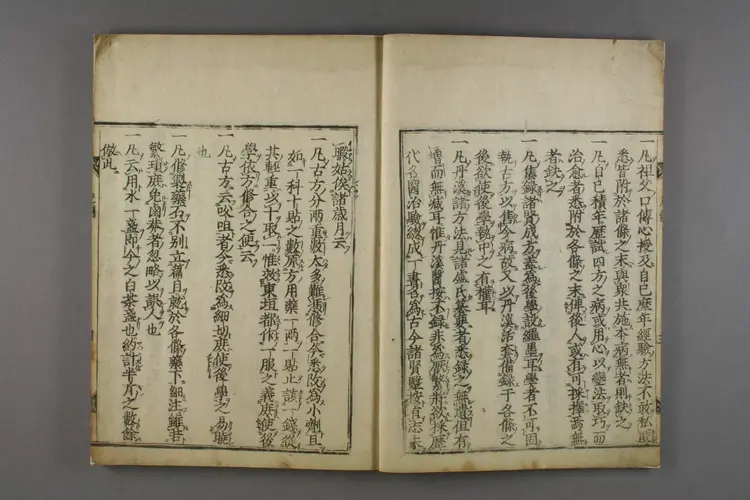 一凡祖父口傳心授及自己歷年經驗方法不敢私匿
悉皆附於諸條之末與眾共施本病無者則缺之
一凡自己積年歷試四方之病或用心以變法取巧而
治愈者悉附於各條之末俾後人或有可採擇焉無
者缺之
一凡集錄諸賢成方蓋為後學設繩墨耳學者不可固
執古方以售今病故又以丹溪治套備錄于各條之
後欲使後學執中之有權耳
一凡丹溪諸方法見諸盧氏纂集者悉錄之無遺但有
增而無減耳惟丹溪醫按不錄非為厭繁
代名醫治驗總成一書名為古今諸賢醫按有志未
暇姑俟諸歲月云
一凡古方分兩重數太多難憑修合今悉改為小劑且
如一科十貼之數原方用藥一兩一貼止該一錢從
其輕重以十取一惟效東垣都作一服之義庶使後
學依方修合之便云
一凡古方云㕮咀者今悉改為細切庶使後學之易曉
也
一凡修製藥石不別立篇目就於各條藥下細注雖若
繁瑣庶免鹵莽者忽略以誤人也
一凡云用水一盞即今之白茶盞也約計半斤之數餘
倣此